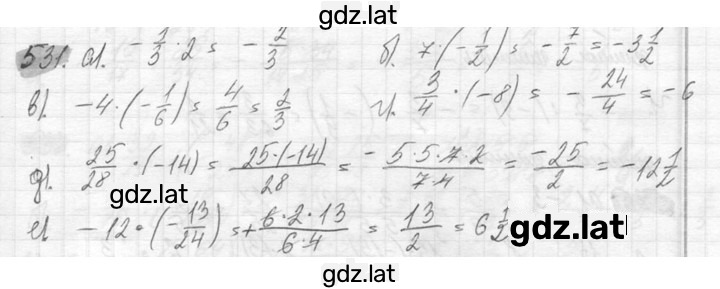 gdz.lat
531. а). -1/3 · 2 = -2/3 б). 7 · (-1/2) = -7/2 = -3 1/2
в). -4 · (-1/6) = 4/6 = 2/3 г). 3/4 · (-8) = -24/4 = -6
д). 25/28 · (-14) = 25·(-14)/28 = -5·5·7·2/7·4 = -25/2 = -12 1/2
е). -12 · (-13/24) = +6·2·13/6·4 = 13/2 = 6 1/2 gdz.lat
gdz.lat